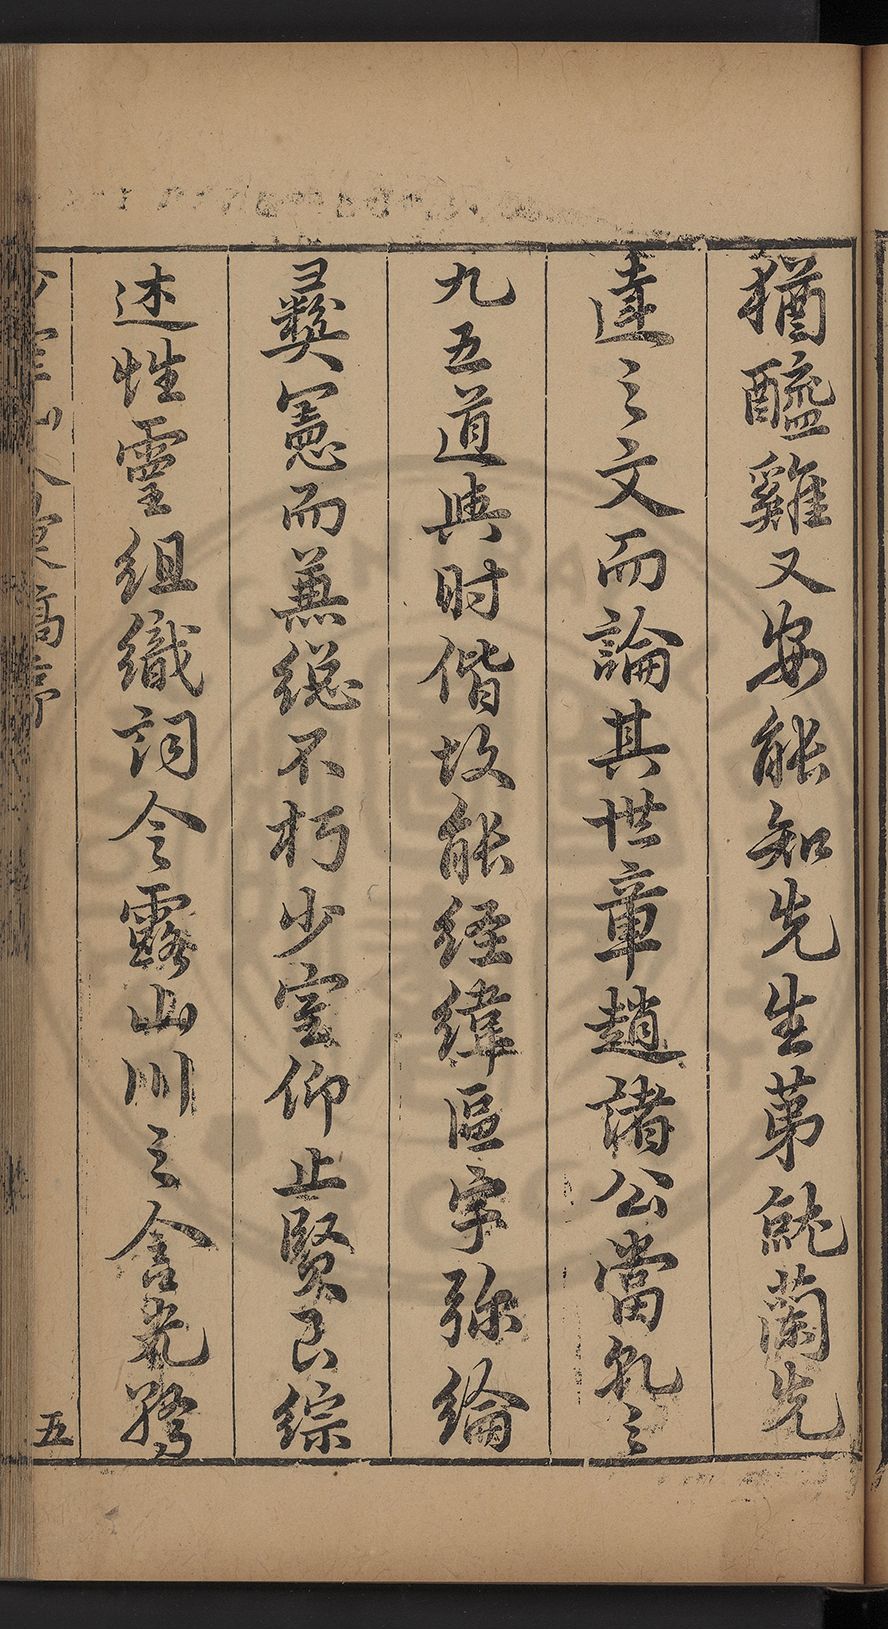 猶醯雞又安能知先生第就蘭先
達之文而論其世章趙諸公當乳之
九五道與时偕故能经緯區宇弥綸
彛憲而兼総不朽少室仰止賢良綜
述性靈组織詞令露山川之含光
五